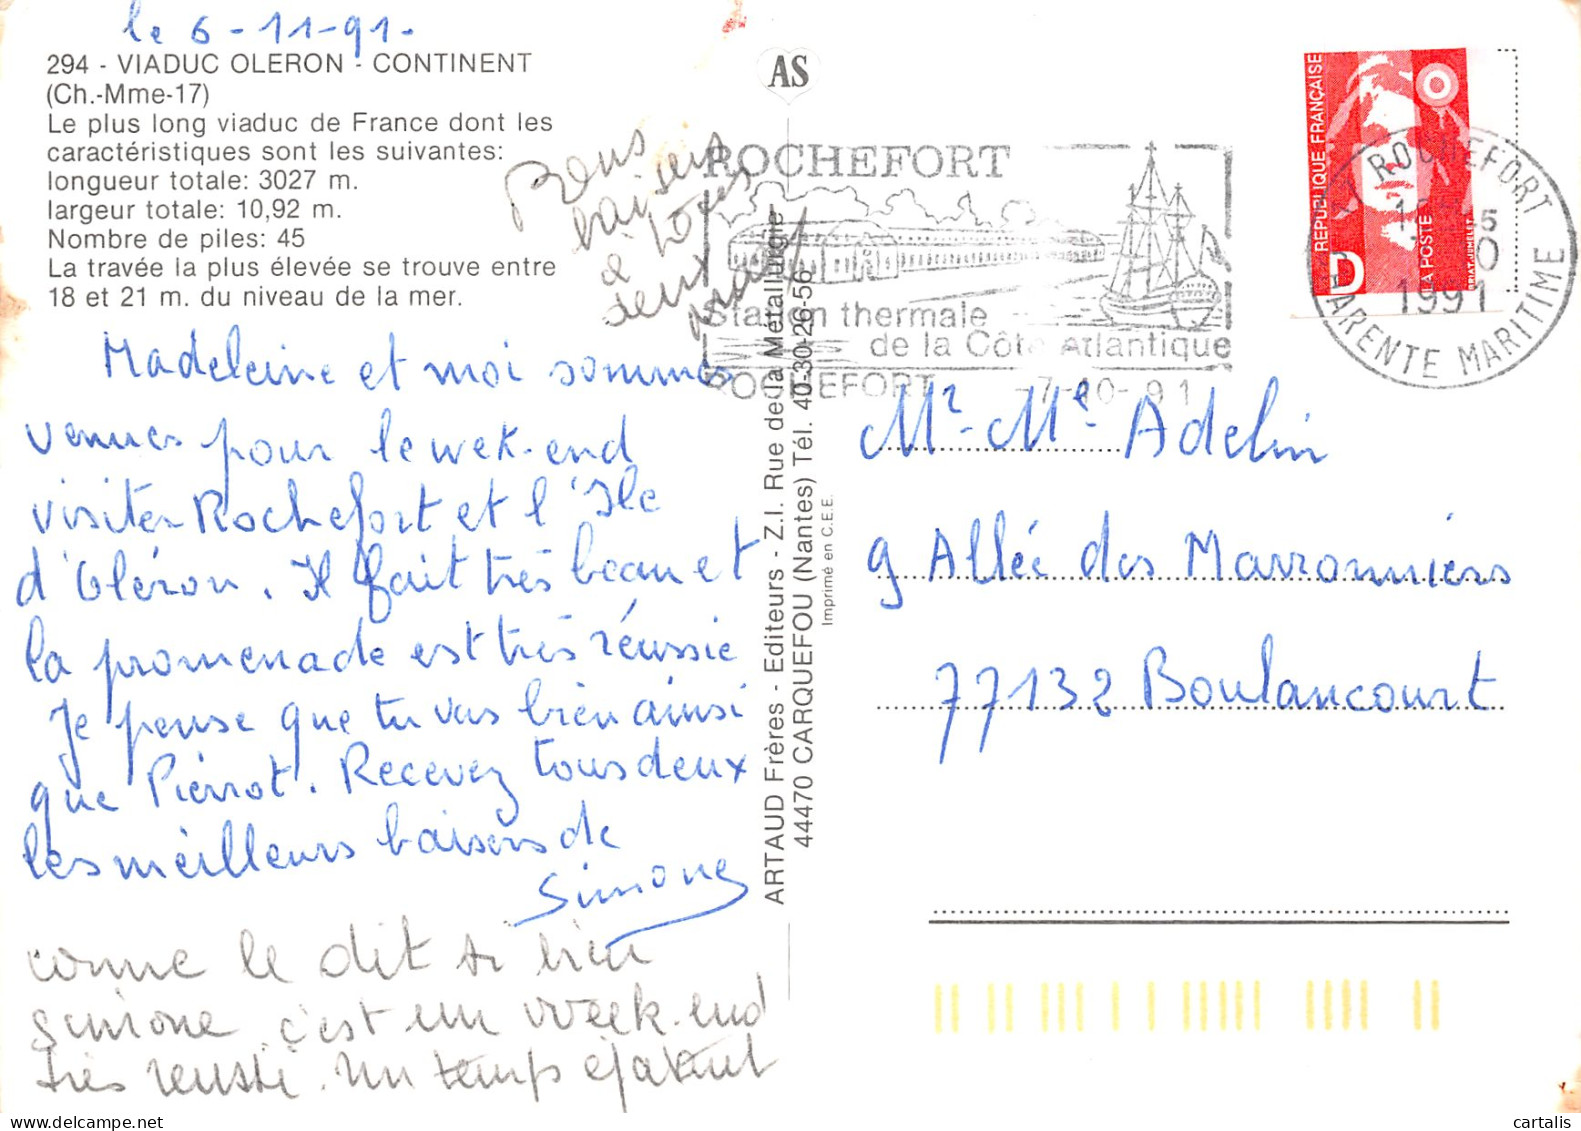 le 6-11-91.
294 - VIADUC OLERON - CONTINENT
(Ch.-Mme-17)
Le plus long viaduc de France dont les
caractéristiques sont les suivantes:
longueur totale: 3027 m.
largeur totale: 10,92 m.
Nombre de piles: 45
La travée la plus élevée se trouve entre
18 et 21 m. du niveau de la mer.
Madeleine et moi sommes
venues pour le wek-end
visiter Rochefort et l'Ile
d'Oléron. Il fait très beau et
la promenade est très réussie
Je pense que tu vas bien ainsi
que Pierrot. Recevez tous deux
les meilleurs baisers de
Simone
comme le dit si bien
Simone, c'est un week-end
très reussi. Un temps
Bons
baisers
à
deux
AS
ARTAUD Frères - Editeurs - Z.I. Rue de la Métallurgie
44470 CARQUEFOU (Nantes) Tél. 40-30-26-56
Imprimé en C.E.E.
ROCHEFORT
Station thermale
de la Côte Atlantique
ROCHEFORT -7-10-91
RÉPUBLIQUE FRANÇAISE
D
LA POSTE
ROCHEFORT
1991
CHARENTE MARITIME
Mr-Me Adelin
9 Allée des Marronniers
77132 Boulancourt
cartalis